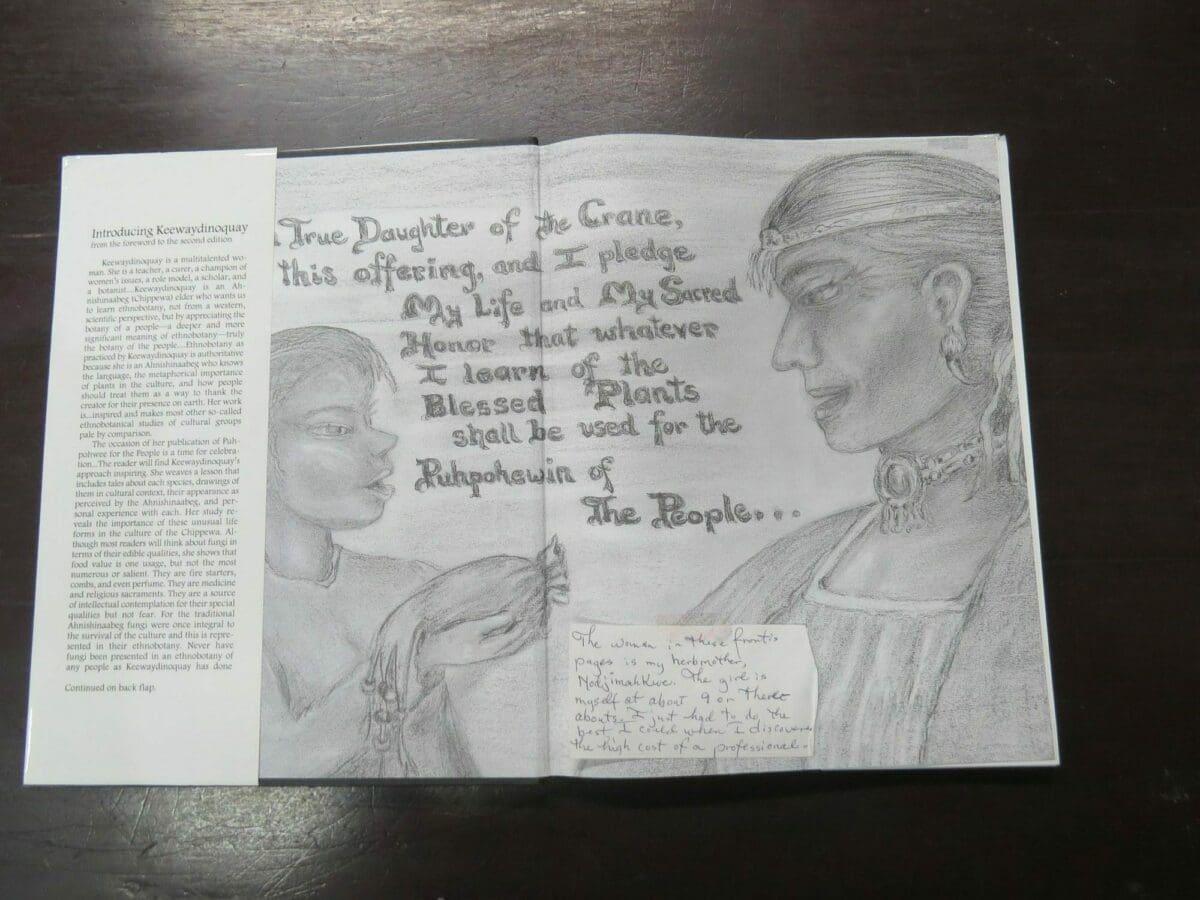 Introducing Keewaydinoquay
from the foreword to the second edition
Keewaydinoquay is a multitalented wo-
man. She is a teacher, a curer, a champion of
women's issues, a role model, a scholar, and
a botanist...Keewaydinoquay is an Ah-
nishinaabeg (Chippewa) elder who wants us
to learn ethnobotany, not from a western,
scientific perspective, but by appreciating the
botany of a people—a deeper and more
significant meaning of ethnobotany—truly
the botany of the people...Ethnobotany as
practiced by Keewaydinoquay is authoritative
because she is an Ahnishinaabeg who knows
the language, the metaphorical importance
of plants in the culture, and how people
should treat them as a way to thank the
creator for their presence on earth. Her work
is...inspired and makes most other so-called
ethnobotanical studies of cultural groups
pale by comparison.
The occasion of her publication of Puh-
pohwee for the People is a time for celebra-
tion...The reader will find Keewaydinoquay's
approach inspiring. She weaves a lesson that
includes tales about each species, drawings of
them in cultural context, their appearance as
perceived by the Ahnishinaabeg, and per-
sonal experience with each. Her study re-
veals the importance of these unusual life
forms in the culture of the Chippewa. Al-
though most readers will think about fungi in
terms of their edible qualities, she shows that
food value is one usage, but not the most
numerous or salient. They are fire starters,
combs, and even perfume. They are medicine
and religious sacraments. They are a source
of intellectual contemplation for their special
qualities but not fear. For the traditional
Ahnishinaabeg fungi were once integral to
the survival of the culture and this is repre-
sented in their ethnobotany. Never have
fungi been presented in an ethnobotany of
any people as Keewaydinoquay has done
Continued on back flap.
True Daughter of the Crane,
this offering, and I pledge
My Life and My Sacred
Honor that whatever
I learn of the
Blessed Plants
shall be used for the
Puhpohewin of
The People...
The woman in these frontis
pages is my herbmother,
NodjimahKwe. The girl is
myself at about 9 or there
abouts. I just had to do the
best I could when I discovered
the high cost of a professional.